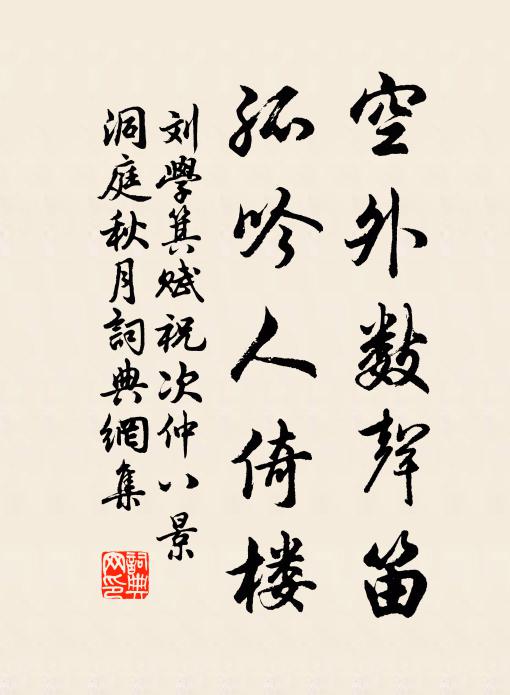 空外数聲笛
孤吟人倚楼
刘學箕赋祝次仲八景
洞庭秋月詞典網集
詞典
网印